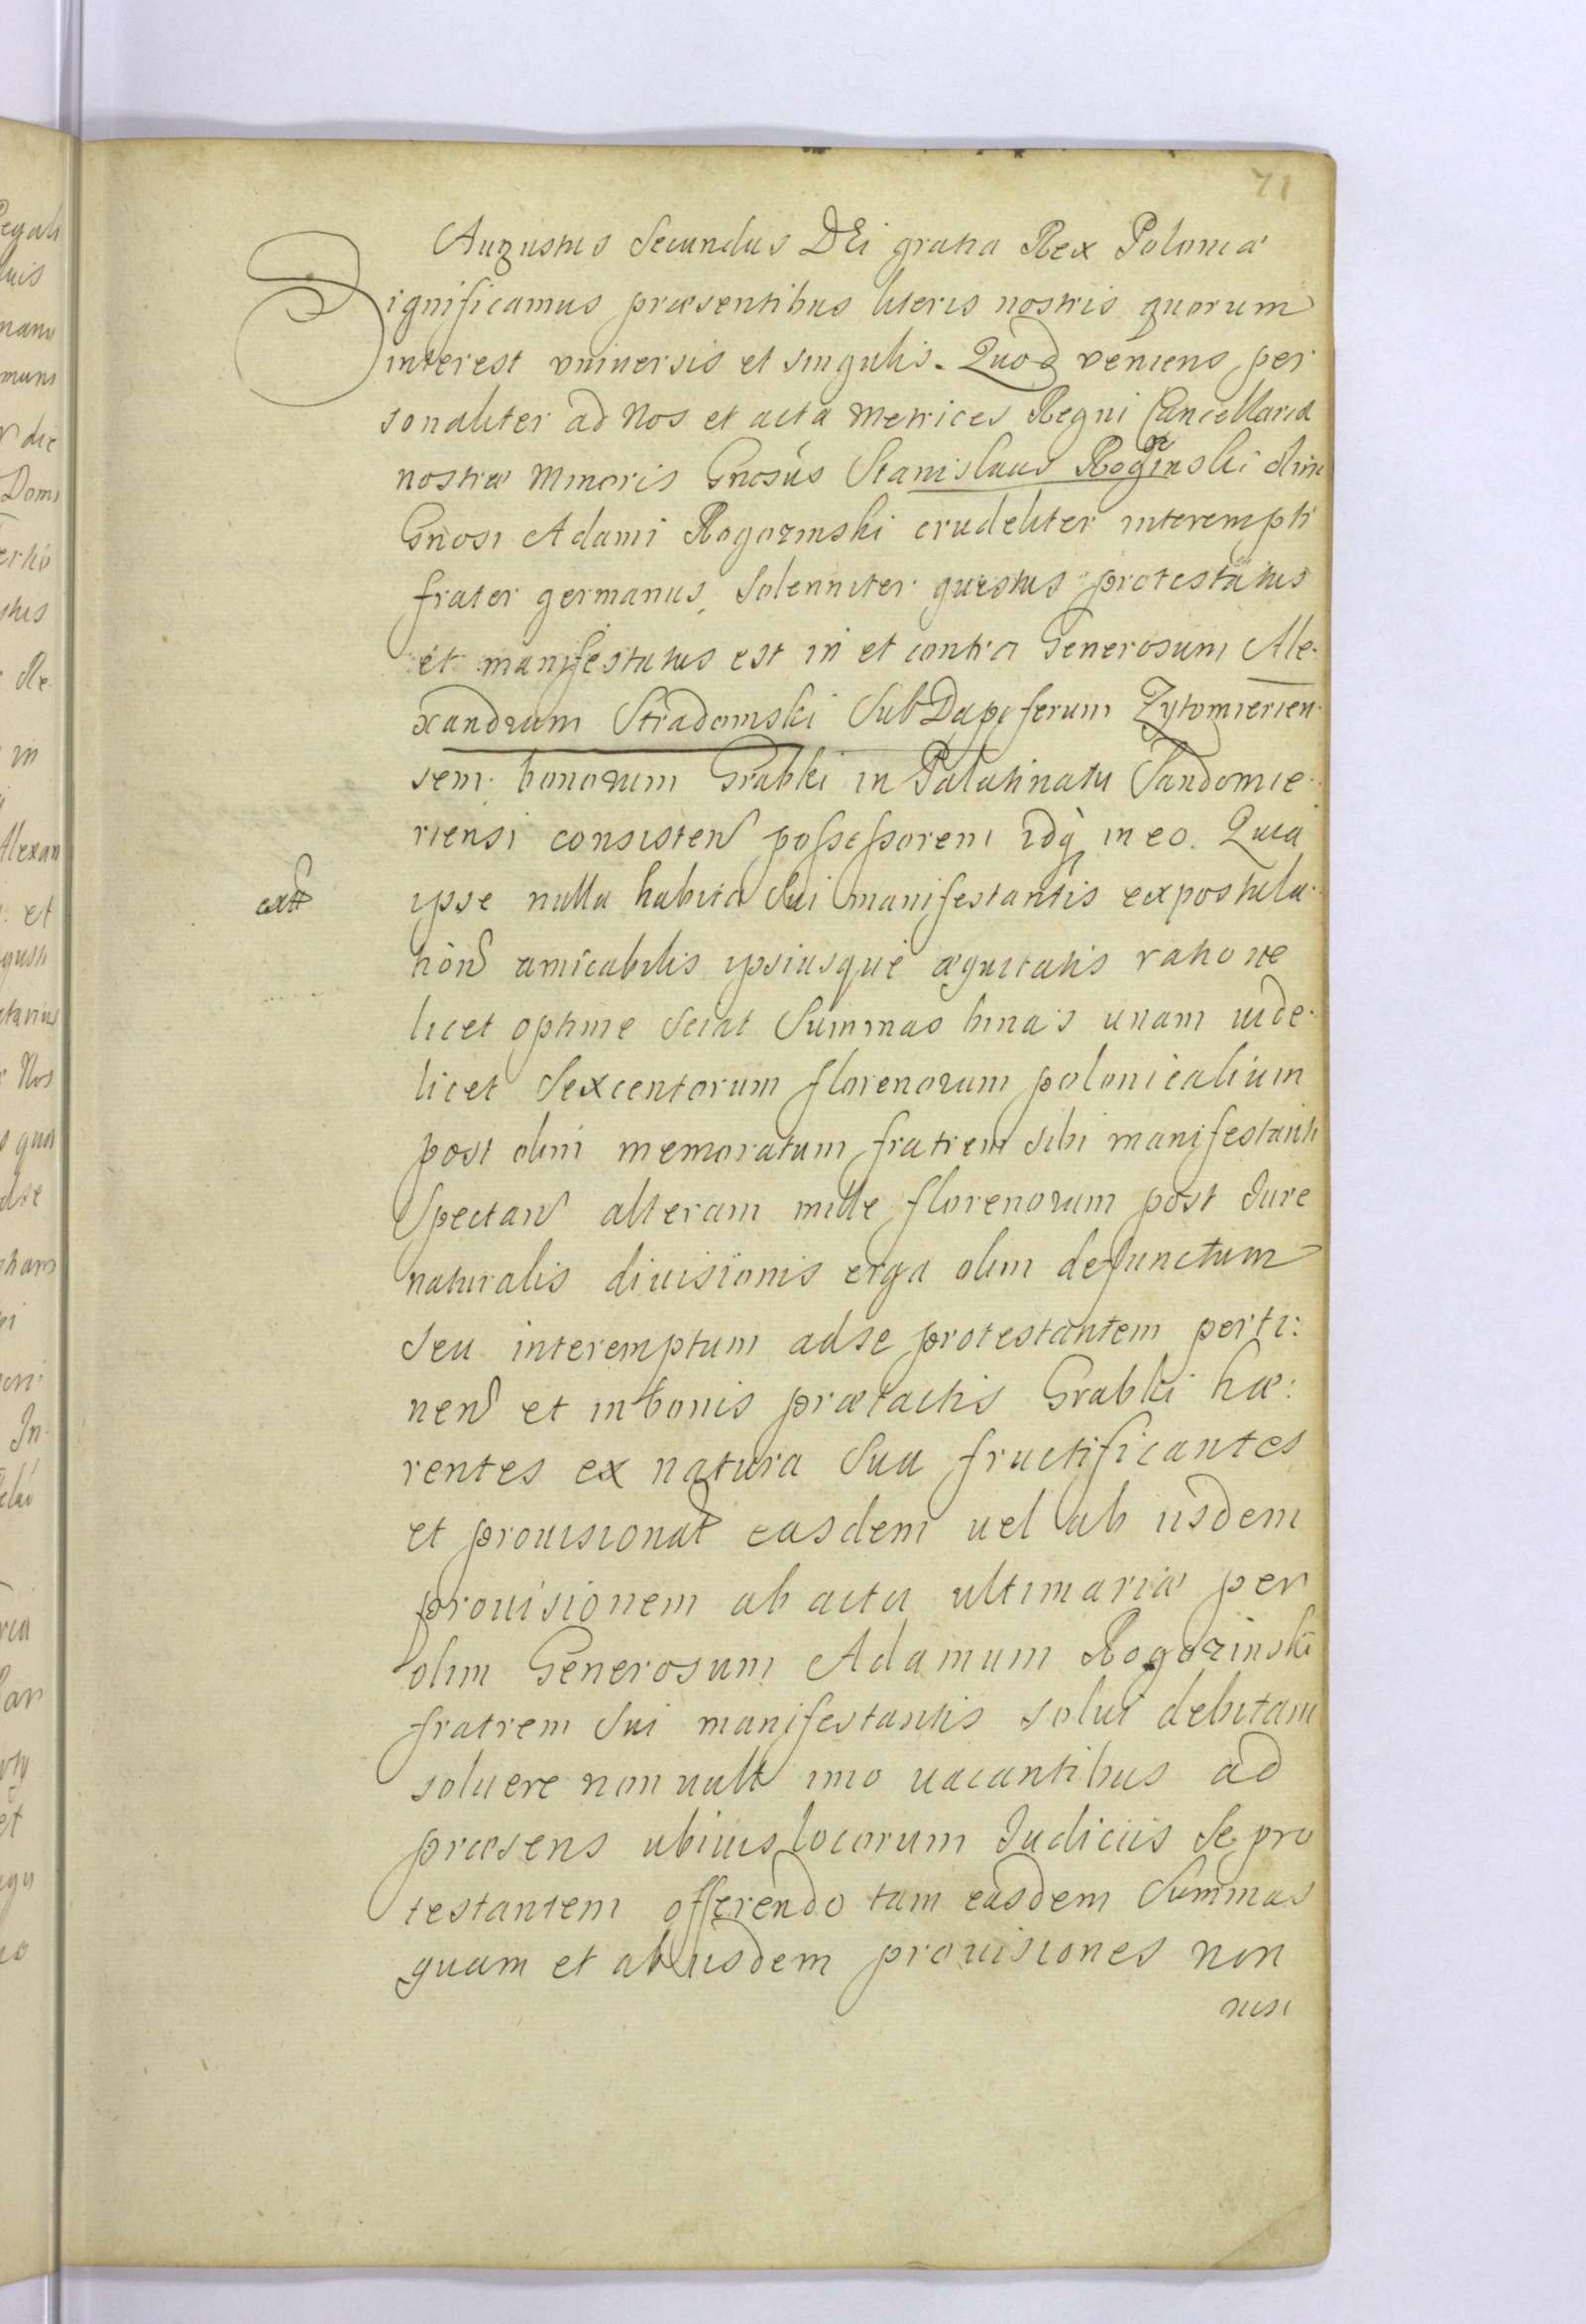 71
Augustus Secundus DEi gratia Rex Poloniæ
Significamus præsentibus literis nostris quorum
interest vniuersis et singulis. Quod veniens per
sonaliter ad Nos et acta Metrices Regni Cancellariæ
nostræ Minoris Gnosus Stanislaus Rogozinski olim
Gnosi Adami Rogozinski crudeliter interempti
frater germanus, solenniter questus protestatus
et manifestatus est in et contra Generosum Ale-
xandrum Stradomski SubDapiferum Zytomierien-
sem bonorum Grabki in Palatinatu Sandomie-
riensi consisten possessorem idq in eo. Quia
ipse nulla habita sui manifestantis expostula-
tion amicabilis ipsiusque æquitatis ratione
licet optime sciat Summas binas unam uide-
licet Sexcentorum florenorum polonicalium
post olim memoratum fratrem sibi manifestanti
Spectan alteram mille florenorum post Jure
naturalis diuisionis erga olim defunctum
seu interemptum ad se protestantem perti:
nen et in bonis prætactis Grabki hæ:
rentes ex natura sua fructificantes
et prouisionat easdem uel ab iisdem
prouisionem ab actu ultimariæ per
olim Generosum Adamum Rogozinski
fratrem sui manifestantis solut debitam
soluere non uult imo uacantibus ad
præsens ubiuis locorum Judiciis se pro
testantem offerendo tam easdem Summas
quam et ab iisdem prouisiones non
nisi